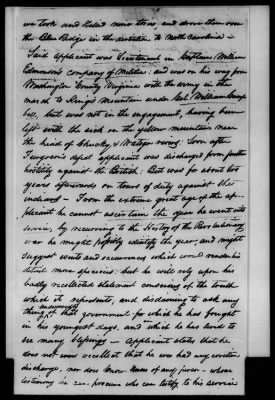 we took and killed nine tories and drove them over
the Blue Ridge in the direction to North Carolina —
Said applicant was Lieutenant in Captain William
Edmondson's company of Militia: and was on his way from
Washington County Virginia with the army in the
march to King's Mountain under Col. William Camp
bell, but was not in the engagement, having been
left with the sick on the yellow mountain near
the head of Chucky & Watoga rivers. Soon after
Ferguson's defeat applicant was discharged from further
hostility against the British: But was for about two
years afterwards on tours of duty against the
indians — From the extreme great age of the ap-
plicant he cannot ascertain the year he went into
service, by recurrence to the History of the Revolutionary
war he might possibly identify the year, and might
suggest events and occurrences which would render his
detail more specious: but he will rely upon his
badly recollected statement conscious of the truth
which it represents, and disdaining to ask any
thing undeserving of that government for which he has fought
in his youngest days, and in which he has lived to
see many blessings — Applicant states that he
does not now recollect that he ever had any written
discharge, nor does know of any person whose
testimony he can procure who can testify to his service